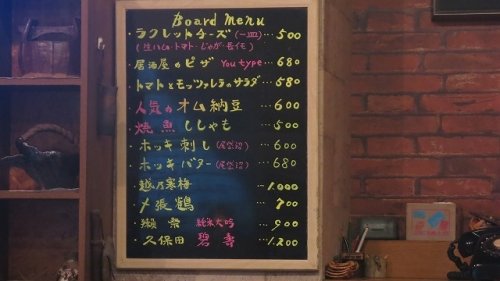 Board Menu
・ラクレットチーズ(一皿)…500
(生ハム・トマト・じゃが・長イモ)
・居酒屋のピザ You type…680
・トマトとモッツァレラのサラダ…580
・人気のオム納豆…600
・焼魚ししゃも…500
・ホッキ刺し…600
・ホッキバター…680
・越乃寒梅…1.000
・〆張鶴…700
・獺祭 純米大吟…900
・久保田 碧寿…1.200